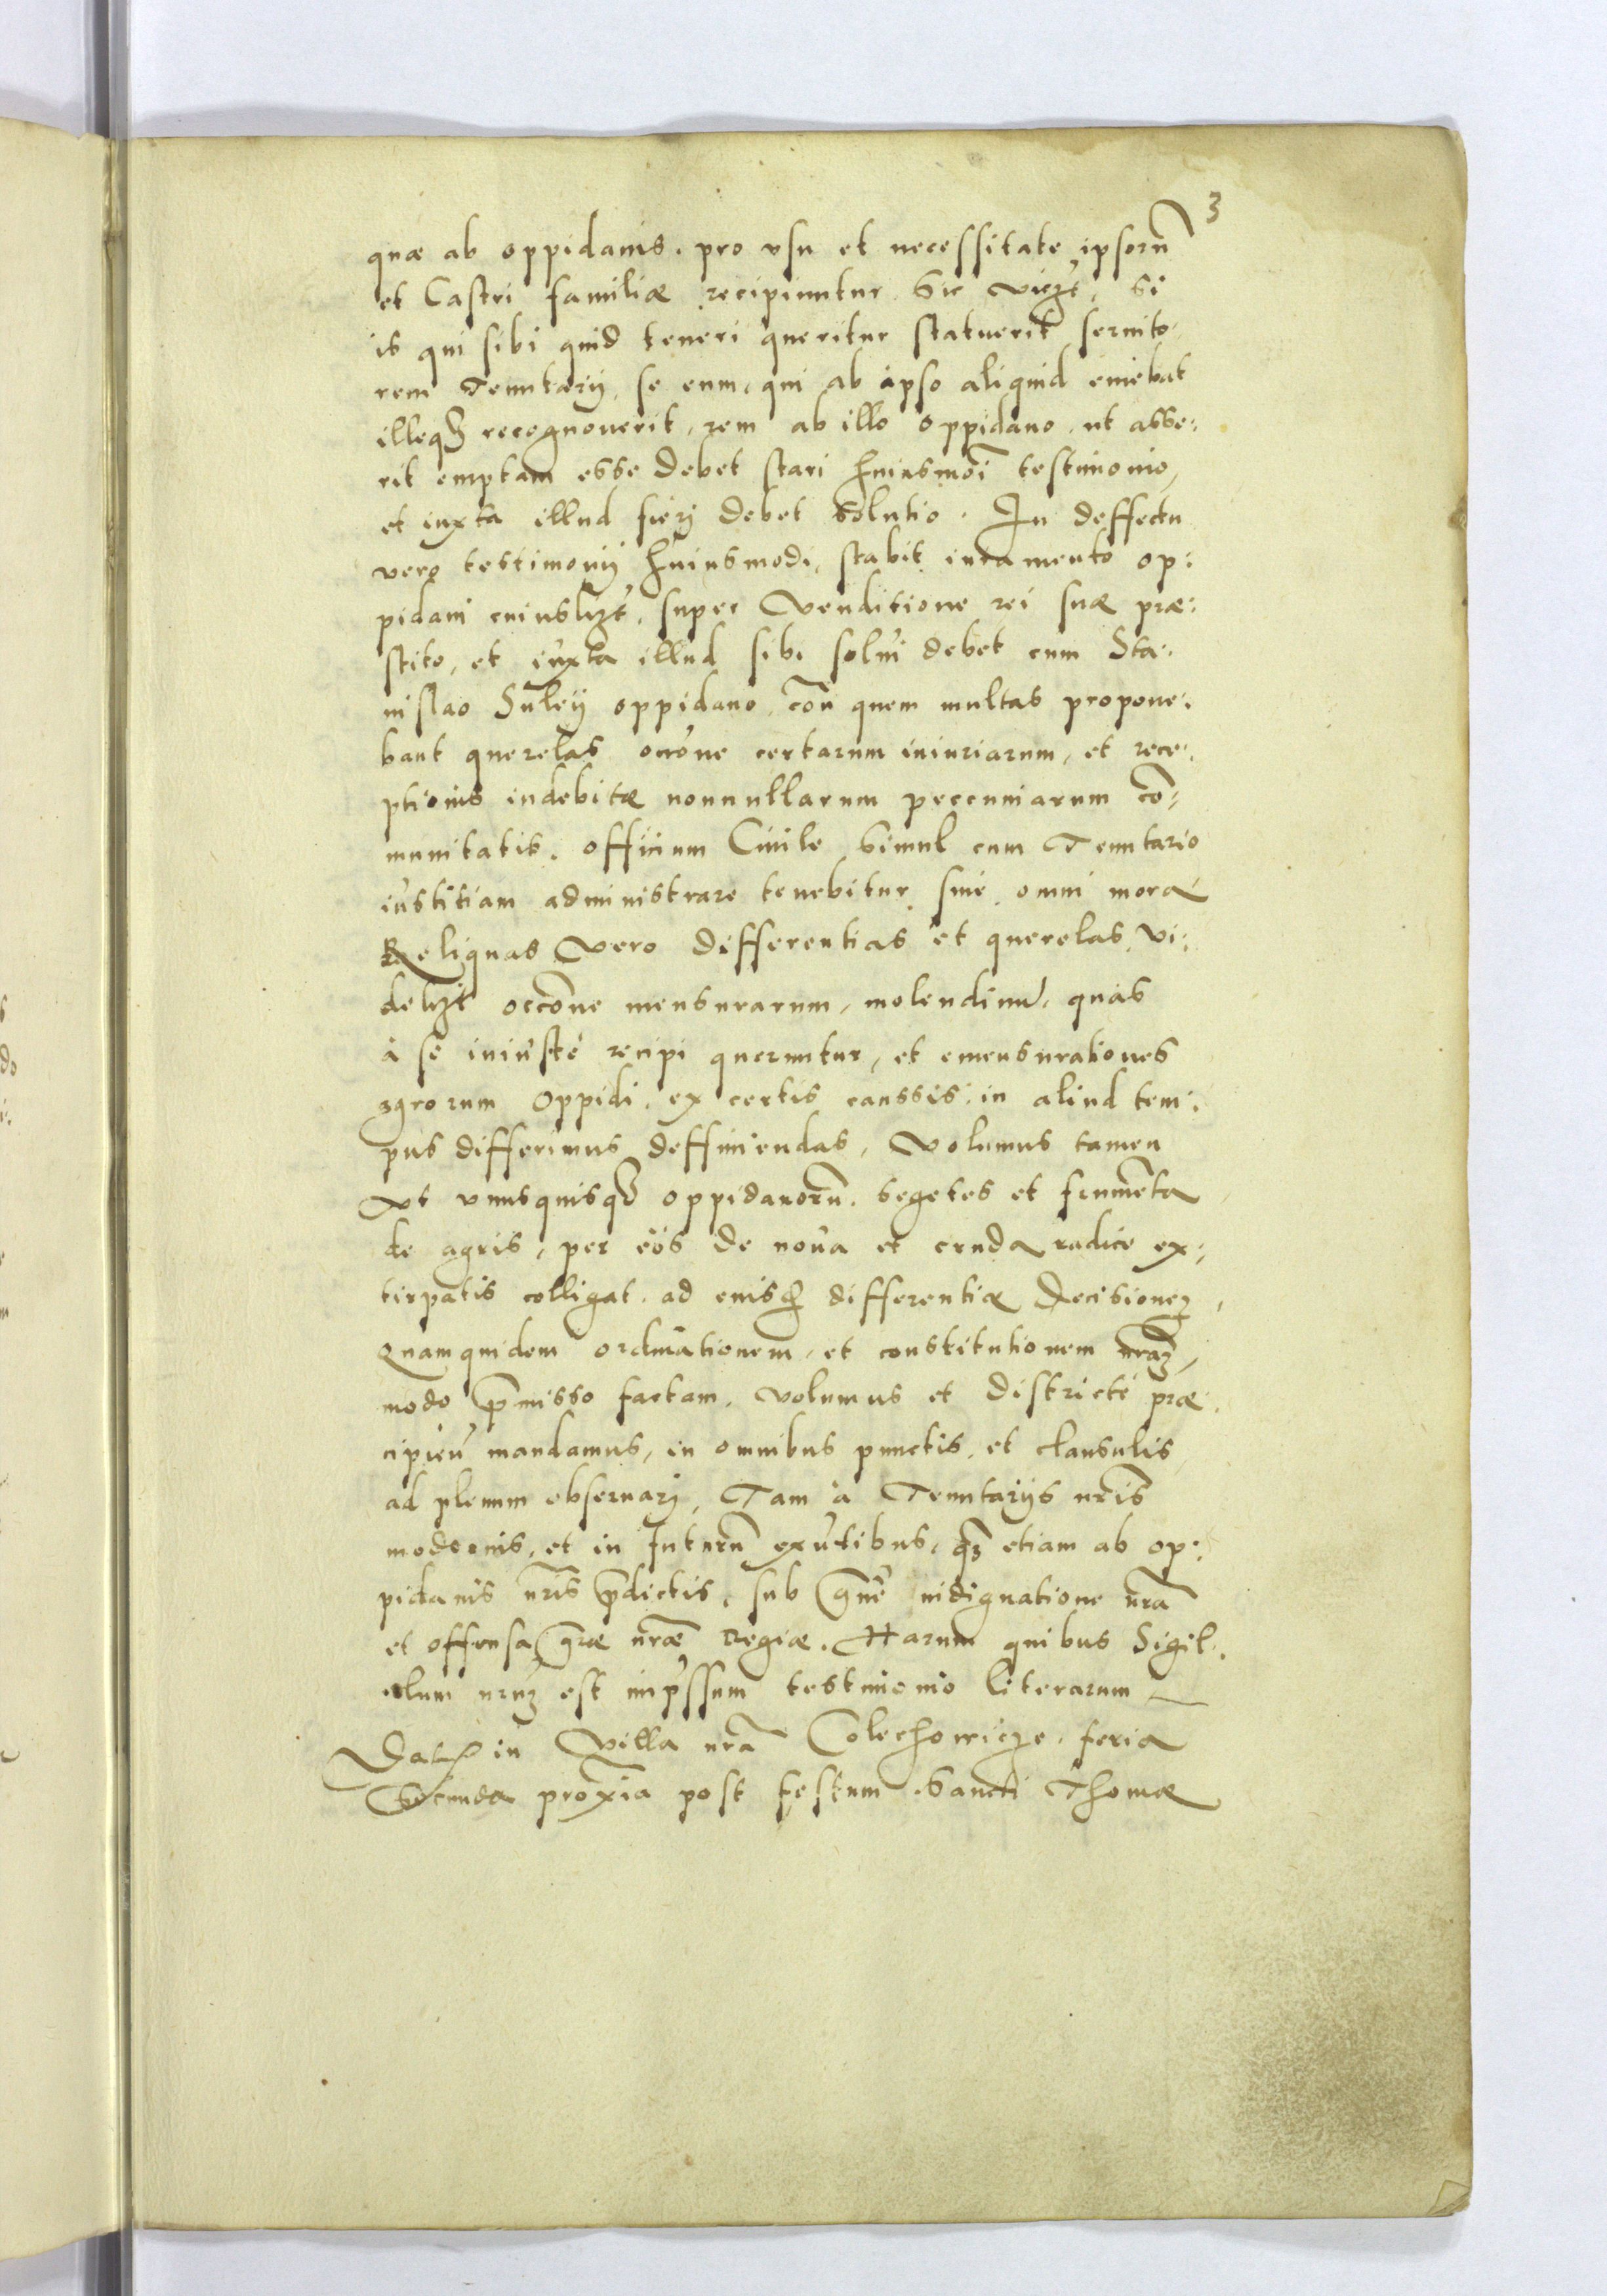 3
quæ ab oppidanis. pro vsu et necessitate ipsorũ
et Castri familiæ recipiuntur. Sic vičzt, Si
is qui sibi quid teneri queritur statuerit seruito
rem Tenutarij, se eum, qui ab ipso aliquid emebat
illeqȝ recognouerit, rem ab illo oppidano, ut asse:
rit emptam esse debet stari huiusmõi testimonio,
et iuxta illud fierj debet solutio. In deffectu
vero testimonij huiusmodi, stabit iuramento op:
pidani cuiuslȝt, super venditione rei suæ præ:
stito, et iuxta illud sibi solui debet cum Sta:
nislao Suleÿ oppidano, cõn quem multas propone:
bant querelas occõne certarum iniuriarum, et rece:
ptionis indebitæ nonnullarum peccuniarum cõ:
munitatis. officium Ciuile simul cum Tenutario
iustitiam administrare tenebitur sine omni mora
Reliquas vero differentias et querelas, vi:
delȝt occõne mensurarum, molendinũ, quas
à se iniustè recipi queruntur, et emensurationes
agrorum oppidi, ex certis caussis, in aliud tem:
pus differimus deffiniendas, volumus tamen
vt vnusquisqȝ oppidanorũ. segetes et frumẽta
de agris, per eos de noua et cruda radice ex:
tirpatis colligat. ad euisdẽ differentiæ decisioneȝ,
Quamquidem ordinationem, et constitutionem nr̃aȝ,
modo p̃misso factam, volumus et districtè præ
cipieñ mandamus, in omnibus punctis, et clausulis
ad plenum obseruarj, Tam à Tenutarijs nr̃is
modernis, et in futurũ exñtibus, qȝ etiam ab op:
pidanis nr̃is p̃dictis, sub gr̃ue indignatione nr̃a
et offensa gr̃æ nr̃æ Regiæ. Harum quibus Sigil:
llum nr̃uȝ est imp̃ssum testimonio literarum
Dat̃ in villa nr̃a Colechowicze. feria
Secunda proxĩa post festum Sancti Thomæ